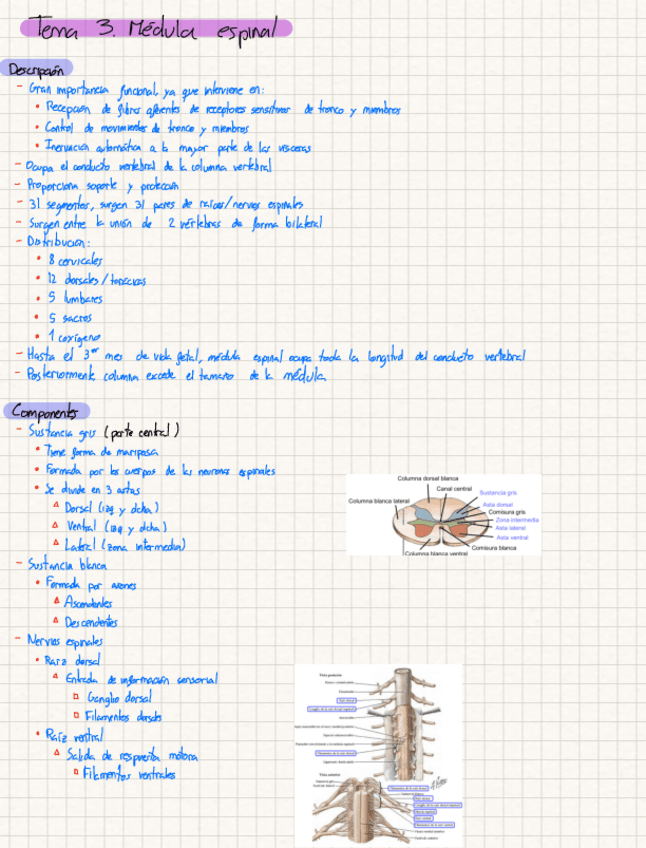 Tema 3. Médula espinal
Descripción
- Gran importancia funcional, ya que interviene en:
• Recepción de fibras aferentes de receptores sensitivos de tronco y miembros
• Control de movimientos de tronco y miembros
• Inervación automática a la mayor parte de las vísceras
- Ocupa el conducto vertebral de la columna vertebral
- Proporciona soporte y protección
- 31 segmentos, surgen 31 pares de raíces/nervios espinales
- Surgen entre la unión de 2 vértebras de forma bilateral
- Distribución:
• 8 cervicales
• 12 dorsales/torácicas
• 5 lumbares
• 5 sacros
• 1 coxígeno
- Hasta el 3er mes de vida fetal, médula espinal ocupa toda la longitud del conducto vertebral
- Posteriormente columna excede el tamaño de la médula
Componentes
- Sustancia gris (parte central)
• Tiene forma de mariposa
• Formada por los cuerpos de las neuronas espinales
• Se divide en 3 astas
Dorsal (izq y dcha)
Ventral (izq y dcha)
Lateral (zona intermedia)
- Sustancia blanca
• Formada por axones
Ascendentes
Descendentes
- Nervios espinales
• Raíz dorsal
Entrada de información sensorial
Ganglio dorsal
Filamentos dorsales
• Raíz ventral
Salida de respuesta motora
Filamentos ventrales
Columna dorsal blanca
Canal central
Columna blanca lateral
Sustancia gris
Asta dorsal
Comisura gris
Zona intermedia
Asta lateral
Asta ventral
Comisura blanca
Columna blanca ventral
Vista posterior
Vista anterior